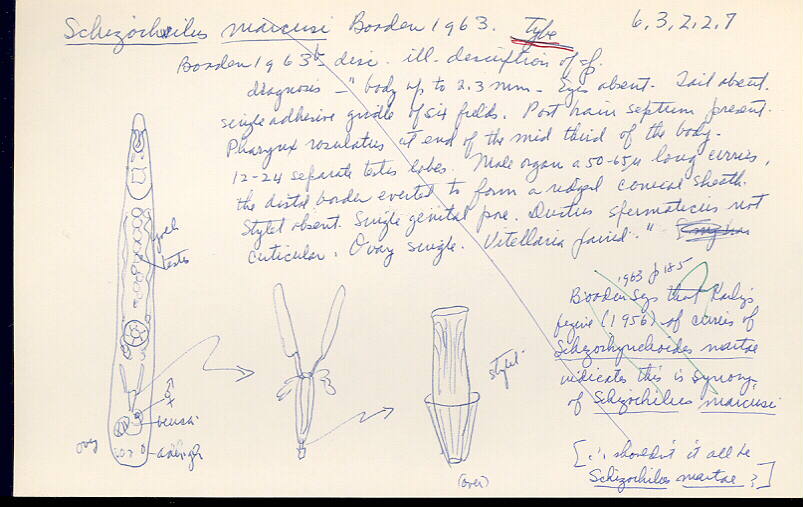 Schizochilus marcusi Boaden 1963. Type 6,3,2,2,7
Boaden 1963b disc. ill. description of sp.
diagnosis - "body up to 2.3 mm. Eyes absent. Tail absent.
single adhesive girdle of six fields. Post brain septum present.
Pharynx rosulatus at end of the mid third of the body.
12-24 separate testes lobes. Male organ a 50-65µ long cirrus,
the distal border everted to form a reflexed conical sheath.
Stylet absent. Single genital pore. Ductus spermaticus not
cuticular. Ovary single. Vitellaria paired."
yolk
testes
♂
♀
bursa
ovary
adhesive
stylet
(over)
1963 p 185
Boaden says that Karling's
figure (1956) of cirrus of
Schizorhynchoides martae
indicates this is synony.
of Schizochilus marcusi
[∴ shouldn't it all be
Schizochilus martae ?]